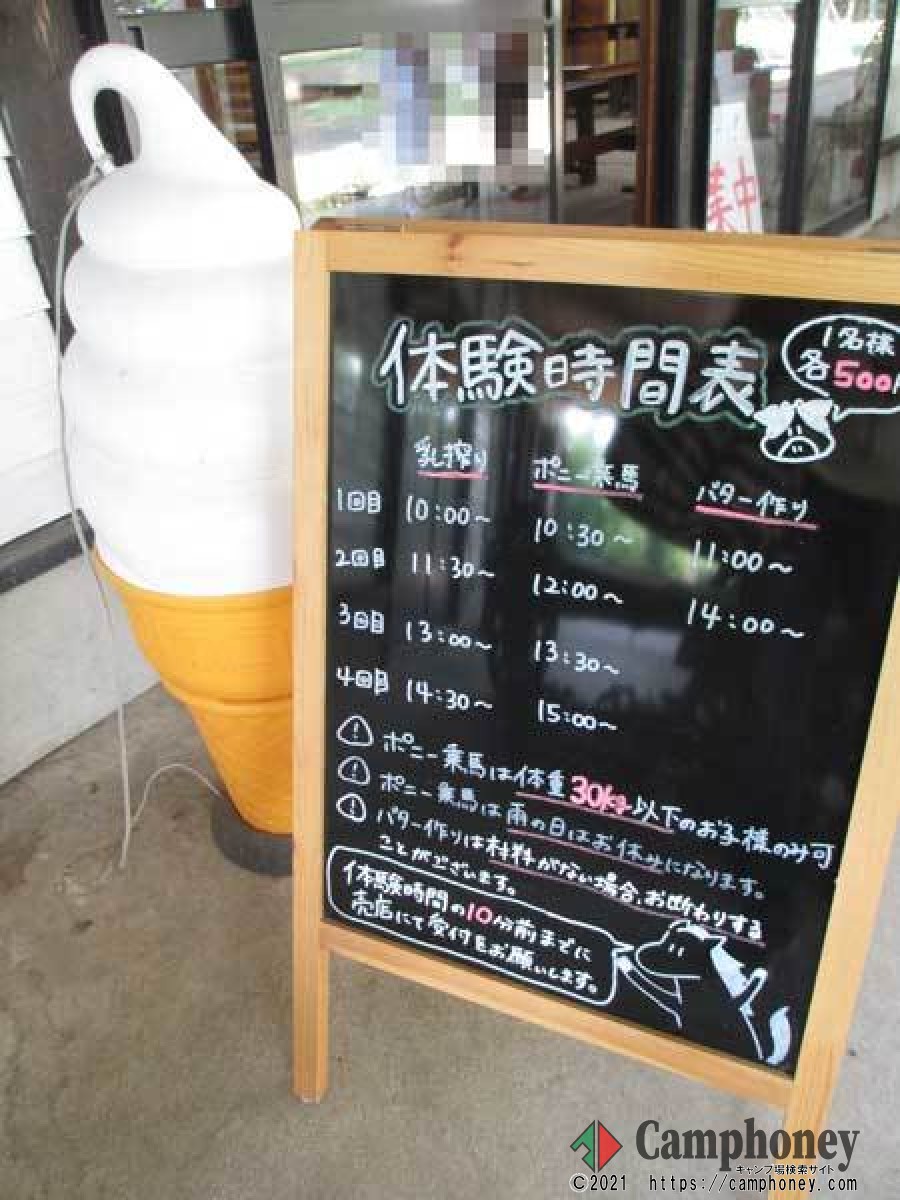 業中
体験時間表
1名様
各500
乳搾り ポニー乗馬 バター作り
1回目 10:00〜 10:30〜 11:00〜
2回目 11:30〜 12:00〜 14:00〜
3回目 13:00〜 13:30〜
4回目 14:30〜 15:00〜
! ポニー乗馬は体重30kg以下のお子様のみ可
! ポニー乗馬は雨の日はお休みになります。
! バター作りは材料がない場合、お断りする
ことがございます。
体験時間の10分前までに
売店にて受付をお願いします。
Camphoney
キャンプ場検索サイト
©2021 https://camphoney.com